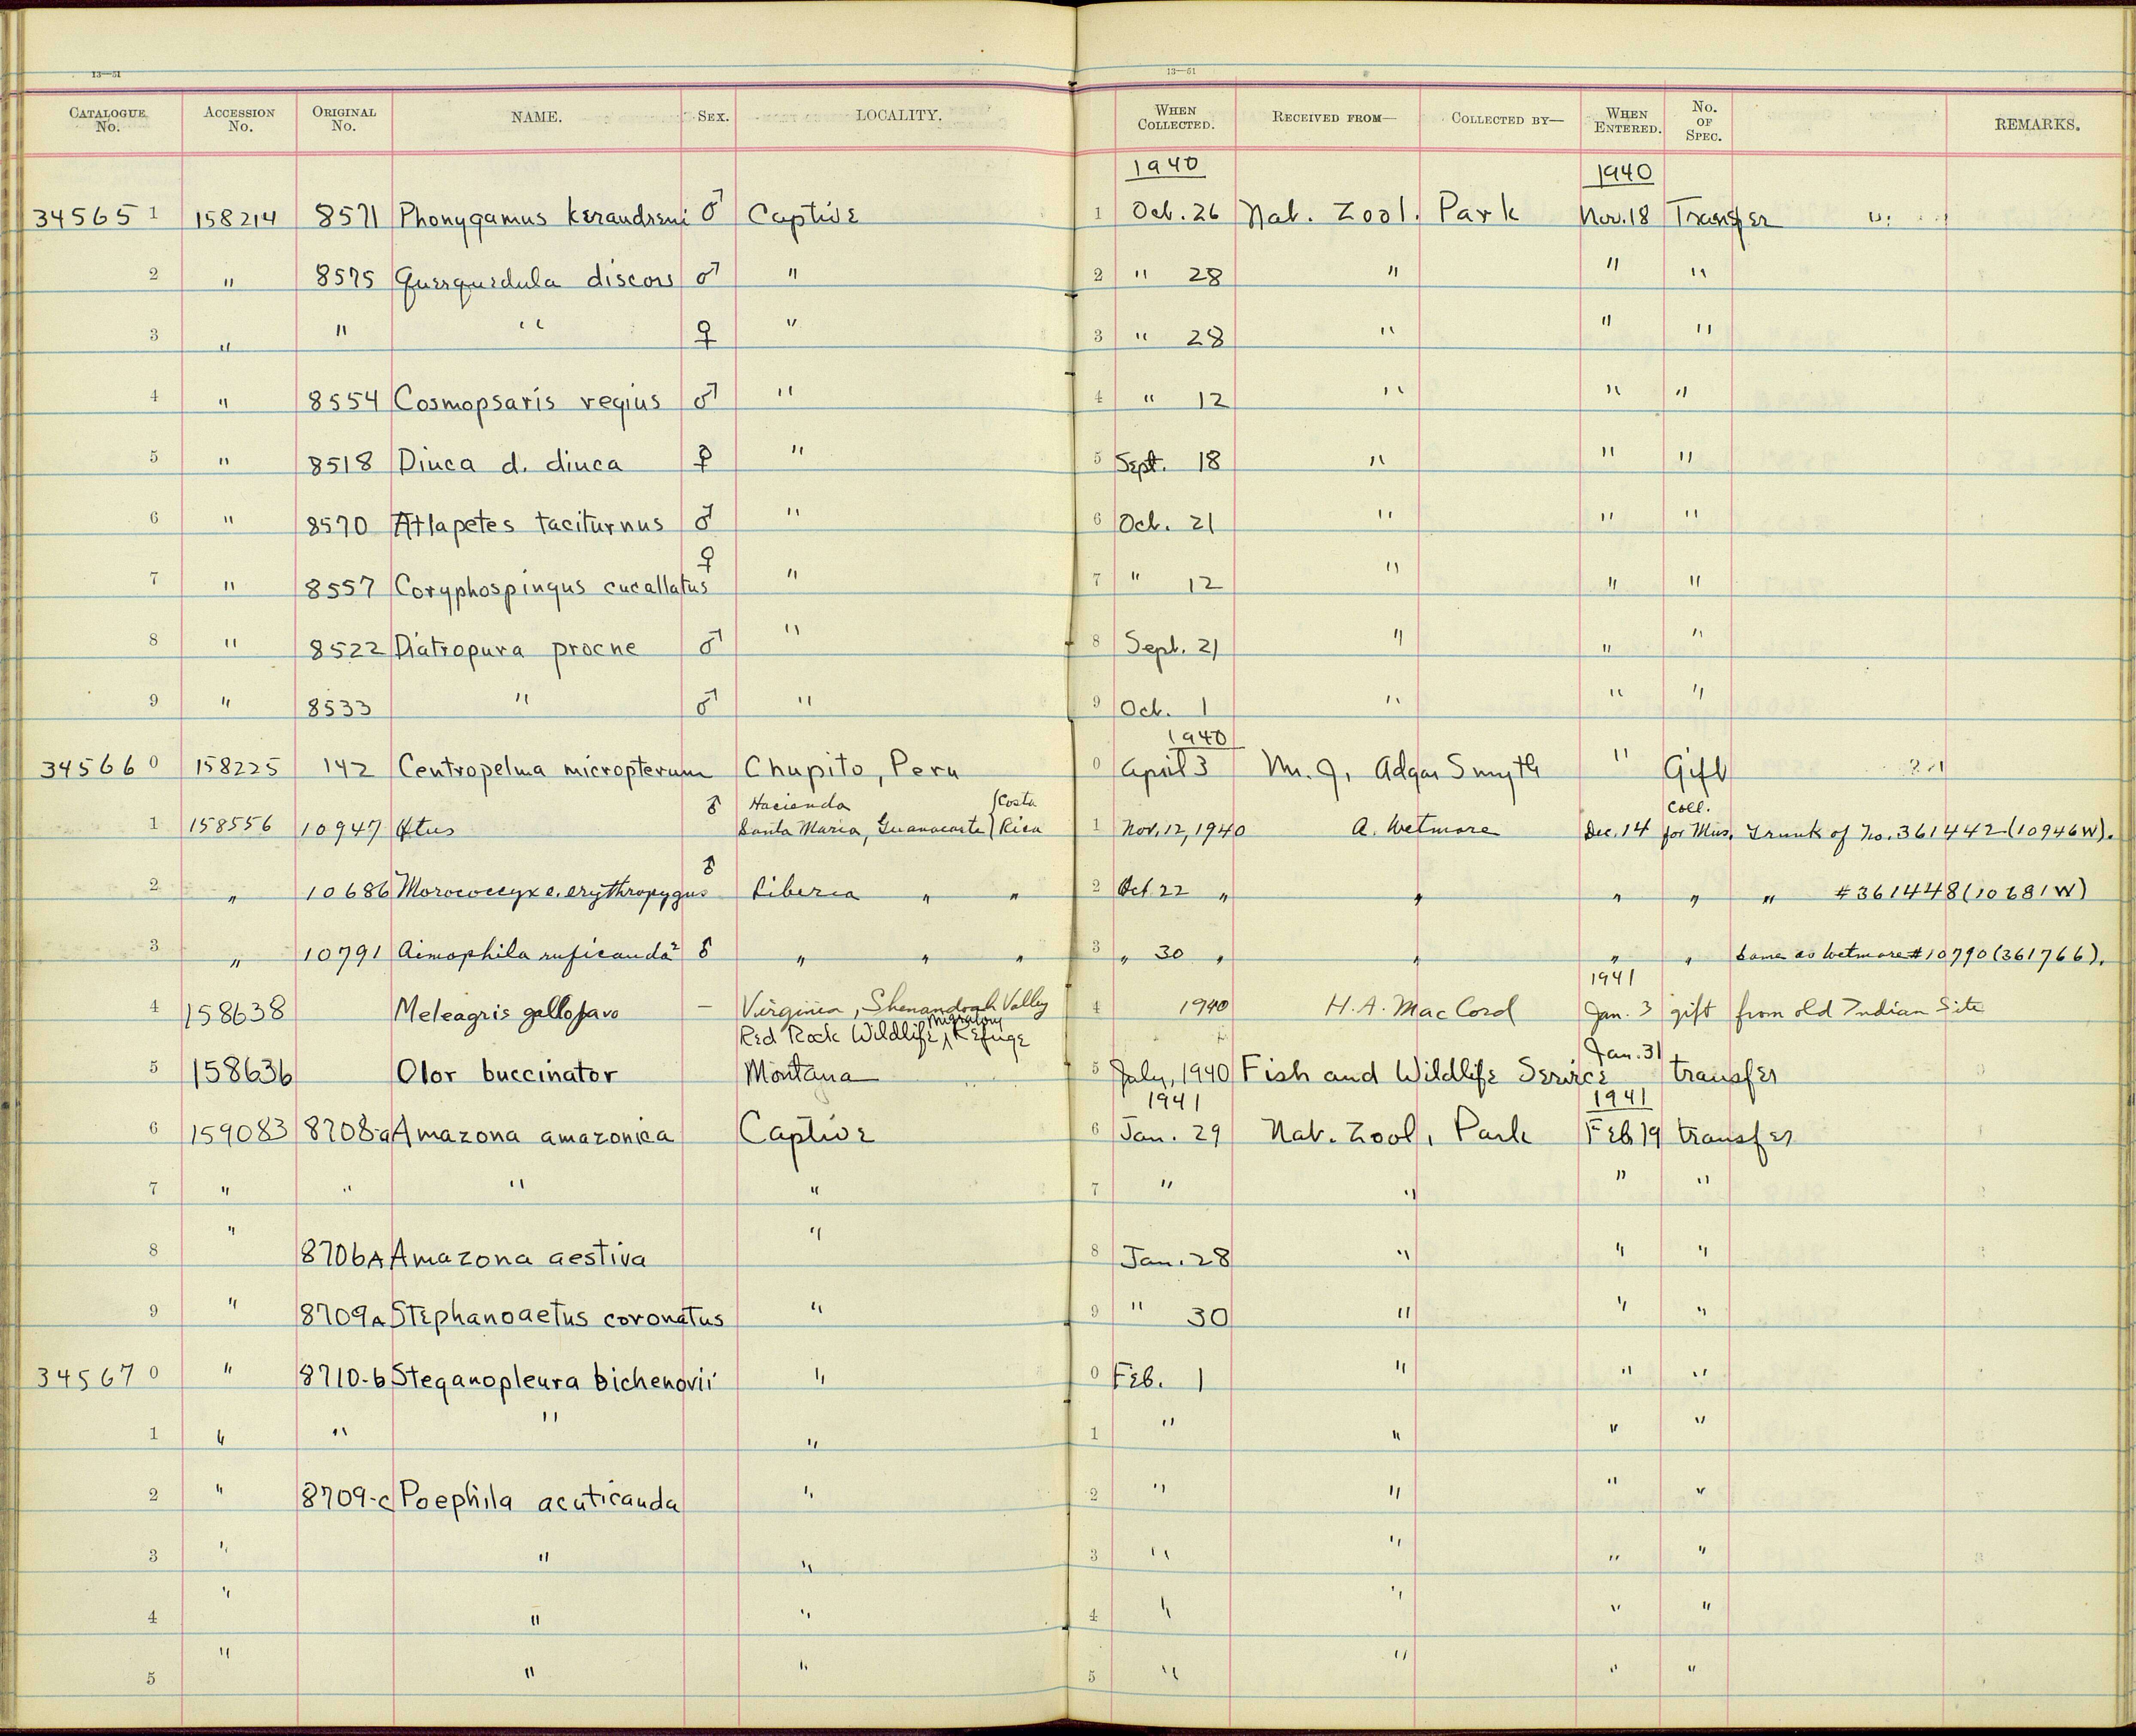 13—51 13—51
CATALOGUE No. ACCESSION No. ORIGINAL No. NAME. SEX. LOCALITY. WHEN COLLECTED. RECEIVED FROM— COLLECTED BY— WHEN ENTERED. No. OF SPEC. REMARKS.
1940 1940
34565 1 158214 8571 Phonygamus keraudreni ♂ Captive 1 Oct. 26 Nat. Zool. Park Nov. 18 Transfer
2 " 8575 Querquedula discors ♂ " 2 " 28 " " "
3 " " " ♀ " 3 " 28 " " "
4 " 8554 Cosmopsaris regius ♂ " 4 " 12 " " "
5 " 8518 Diuca d. diuca ♀ " 5 Sept. 18 " " "
6 " 8570 Atlapetes taciturnus ♂ " 6 Oct. 21 " " "
7 " 8557 Coryphospingus cucallatus ♀ " 7 " 12 " " "
8 " 8522 Diatropura procne ♂ " 8 Sept. 21 " " "
9 " 8533 " ♂ " 9 Oct. 1 " " "
1940
34566 0 158225 142 Centropelma micropterum Chupito, Peru 0 April 3 Mr. J. Adgar Smyth " Gift
1 158556 10947 Otus ♂ Hacienda Santa Maria, Guanacaste Costa Rica 1 Nov. 12, 1940 A. Wetmore Dec. 14 Coll. for Mus. Trunk of No. 361442 (10946W).
2 " 10686 Morococcyx e. erythropygus ♂ Liberia " " 2 Oct 22 " " " " " #361448 (10681W)
3 " 10791 Aimophila ruficauda? ♂ " " " 3 " 30 " " " " Same as Wetmore #10790 (361766).
1941
4 158638 Meleagris gallopavo — Virginia, Shenandoah Valley 4 1940 H. A. MacCord Jan. 3 gift from old Indian Site
Red Rock Wildlife ^ Migratory Refuge
5 158636 Olor buccinator Montana 5 July, 1940 Fish and Wildlife Service Jan. 31 transfer
1941 1941
6 159083 8708-a Amazona amazonica Captive 6 Jan. 29 Nat. Zool. Park Feb 19 transfer
7 " " " " 7 " " " "
8 " 8706A Amazona aestiva " 8 Jan. 28 " " "
9 " 8709A Stephanoaetus coronatus " 9 " 30 " " "
34567 0 " 8710-b Steganopleura bichenovii " 0 Feb. 1 " " "
1 " " " " 1 " " " "
2 " 8709-c Poephila acuticauda " 2 " " " "
3 " " " 3 " " " "
4 " " " 4 " " " "
5 " " " 5 " " " "